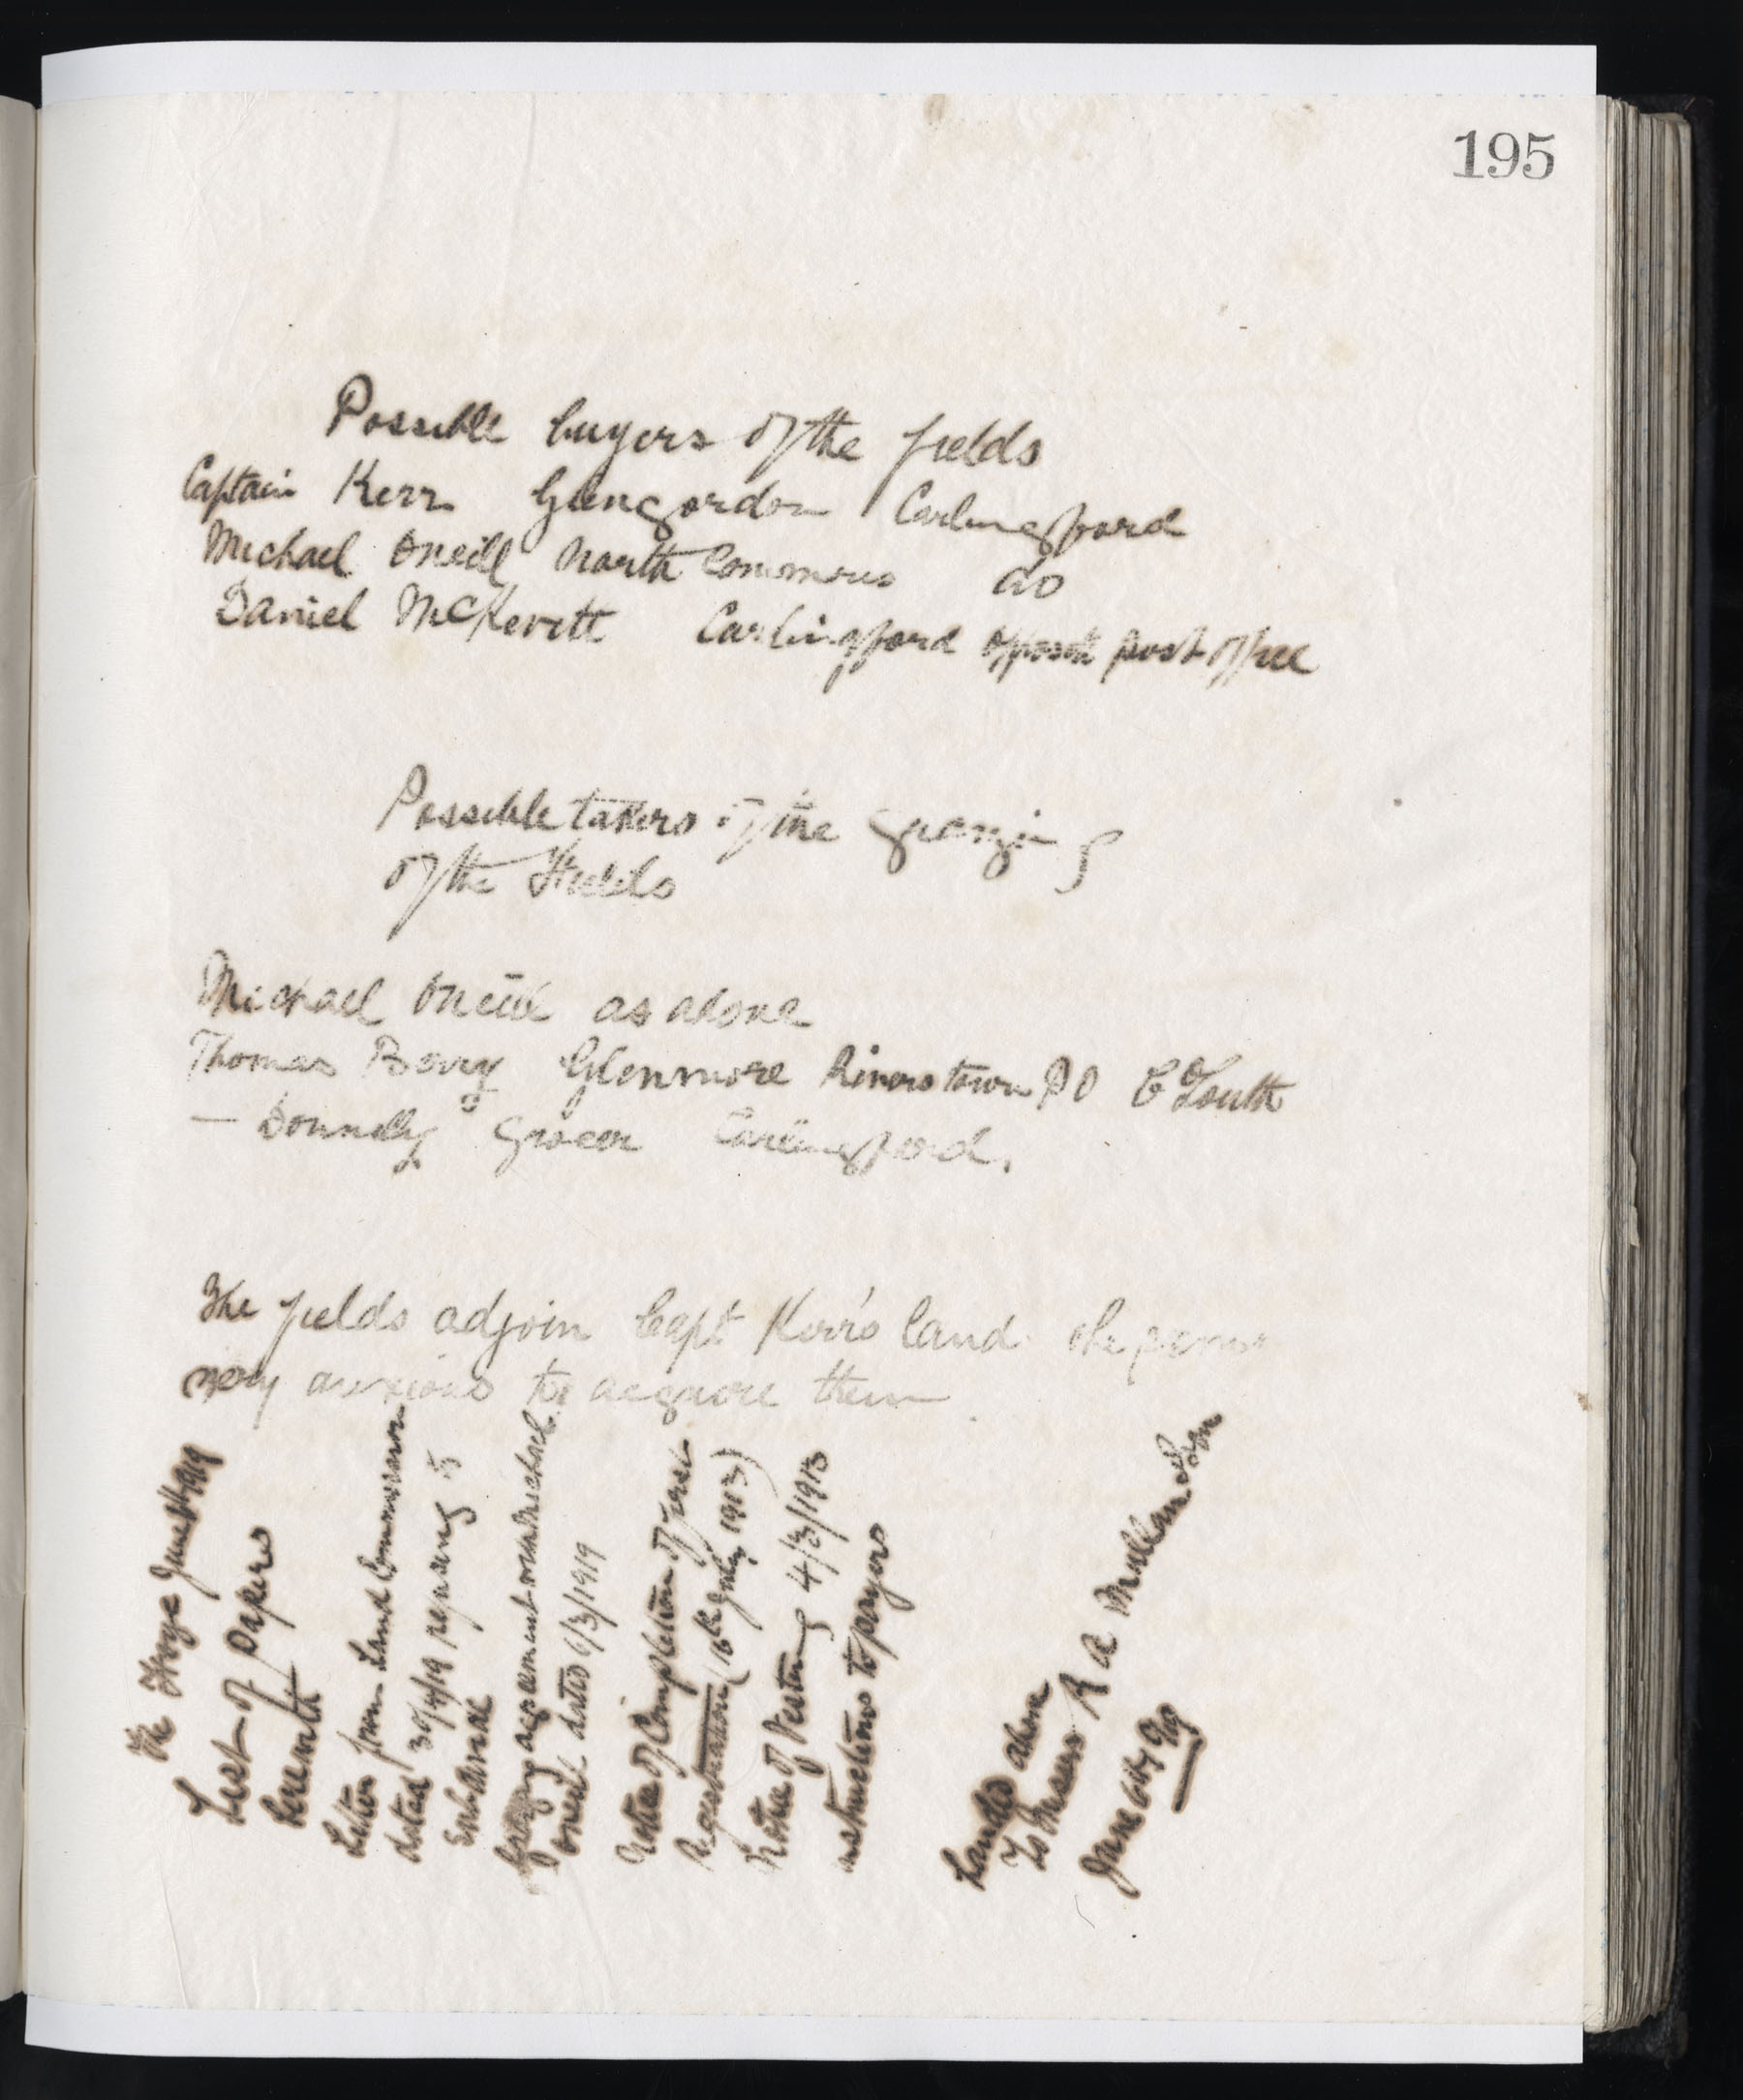 195
Possible buyers of the fields
Captain Kerr Glengordon Carlingford
Michael Oneill North Commons do
Daniel McKevitt Carlingford opposite post office
Possible takers of the grazing
of the Fields
Michael Oneill as above
Thomas Berry Glenmore Riverstown PO Co Louth
— Donnelly Grocer Carlingford.
The fields adjoin Capt Kerr's land
very anxious to acquire them
June 1919
List of Papers
herewith
Letter from Land Commission
dated 30/4/19 refusing to
Grazing agreement with Michael
Oneill dated 6/3/1919
Notice of Completion of First
Registration (16th July 1913)
Notice of Vesting 4/3/1913
instructions to payers
Handed above
To Messrs R A Mullan & Son
June 6th 1919